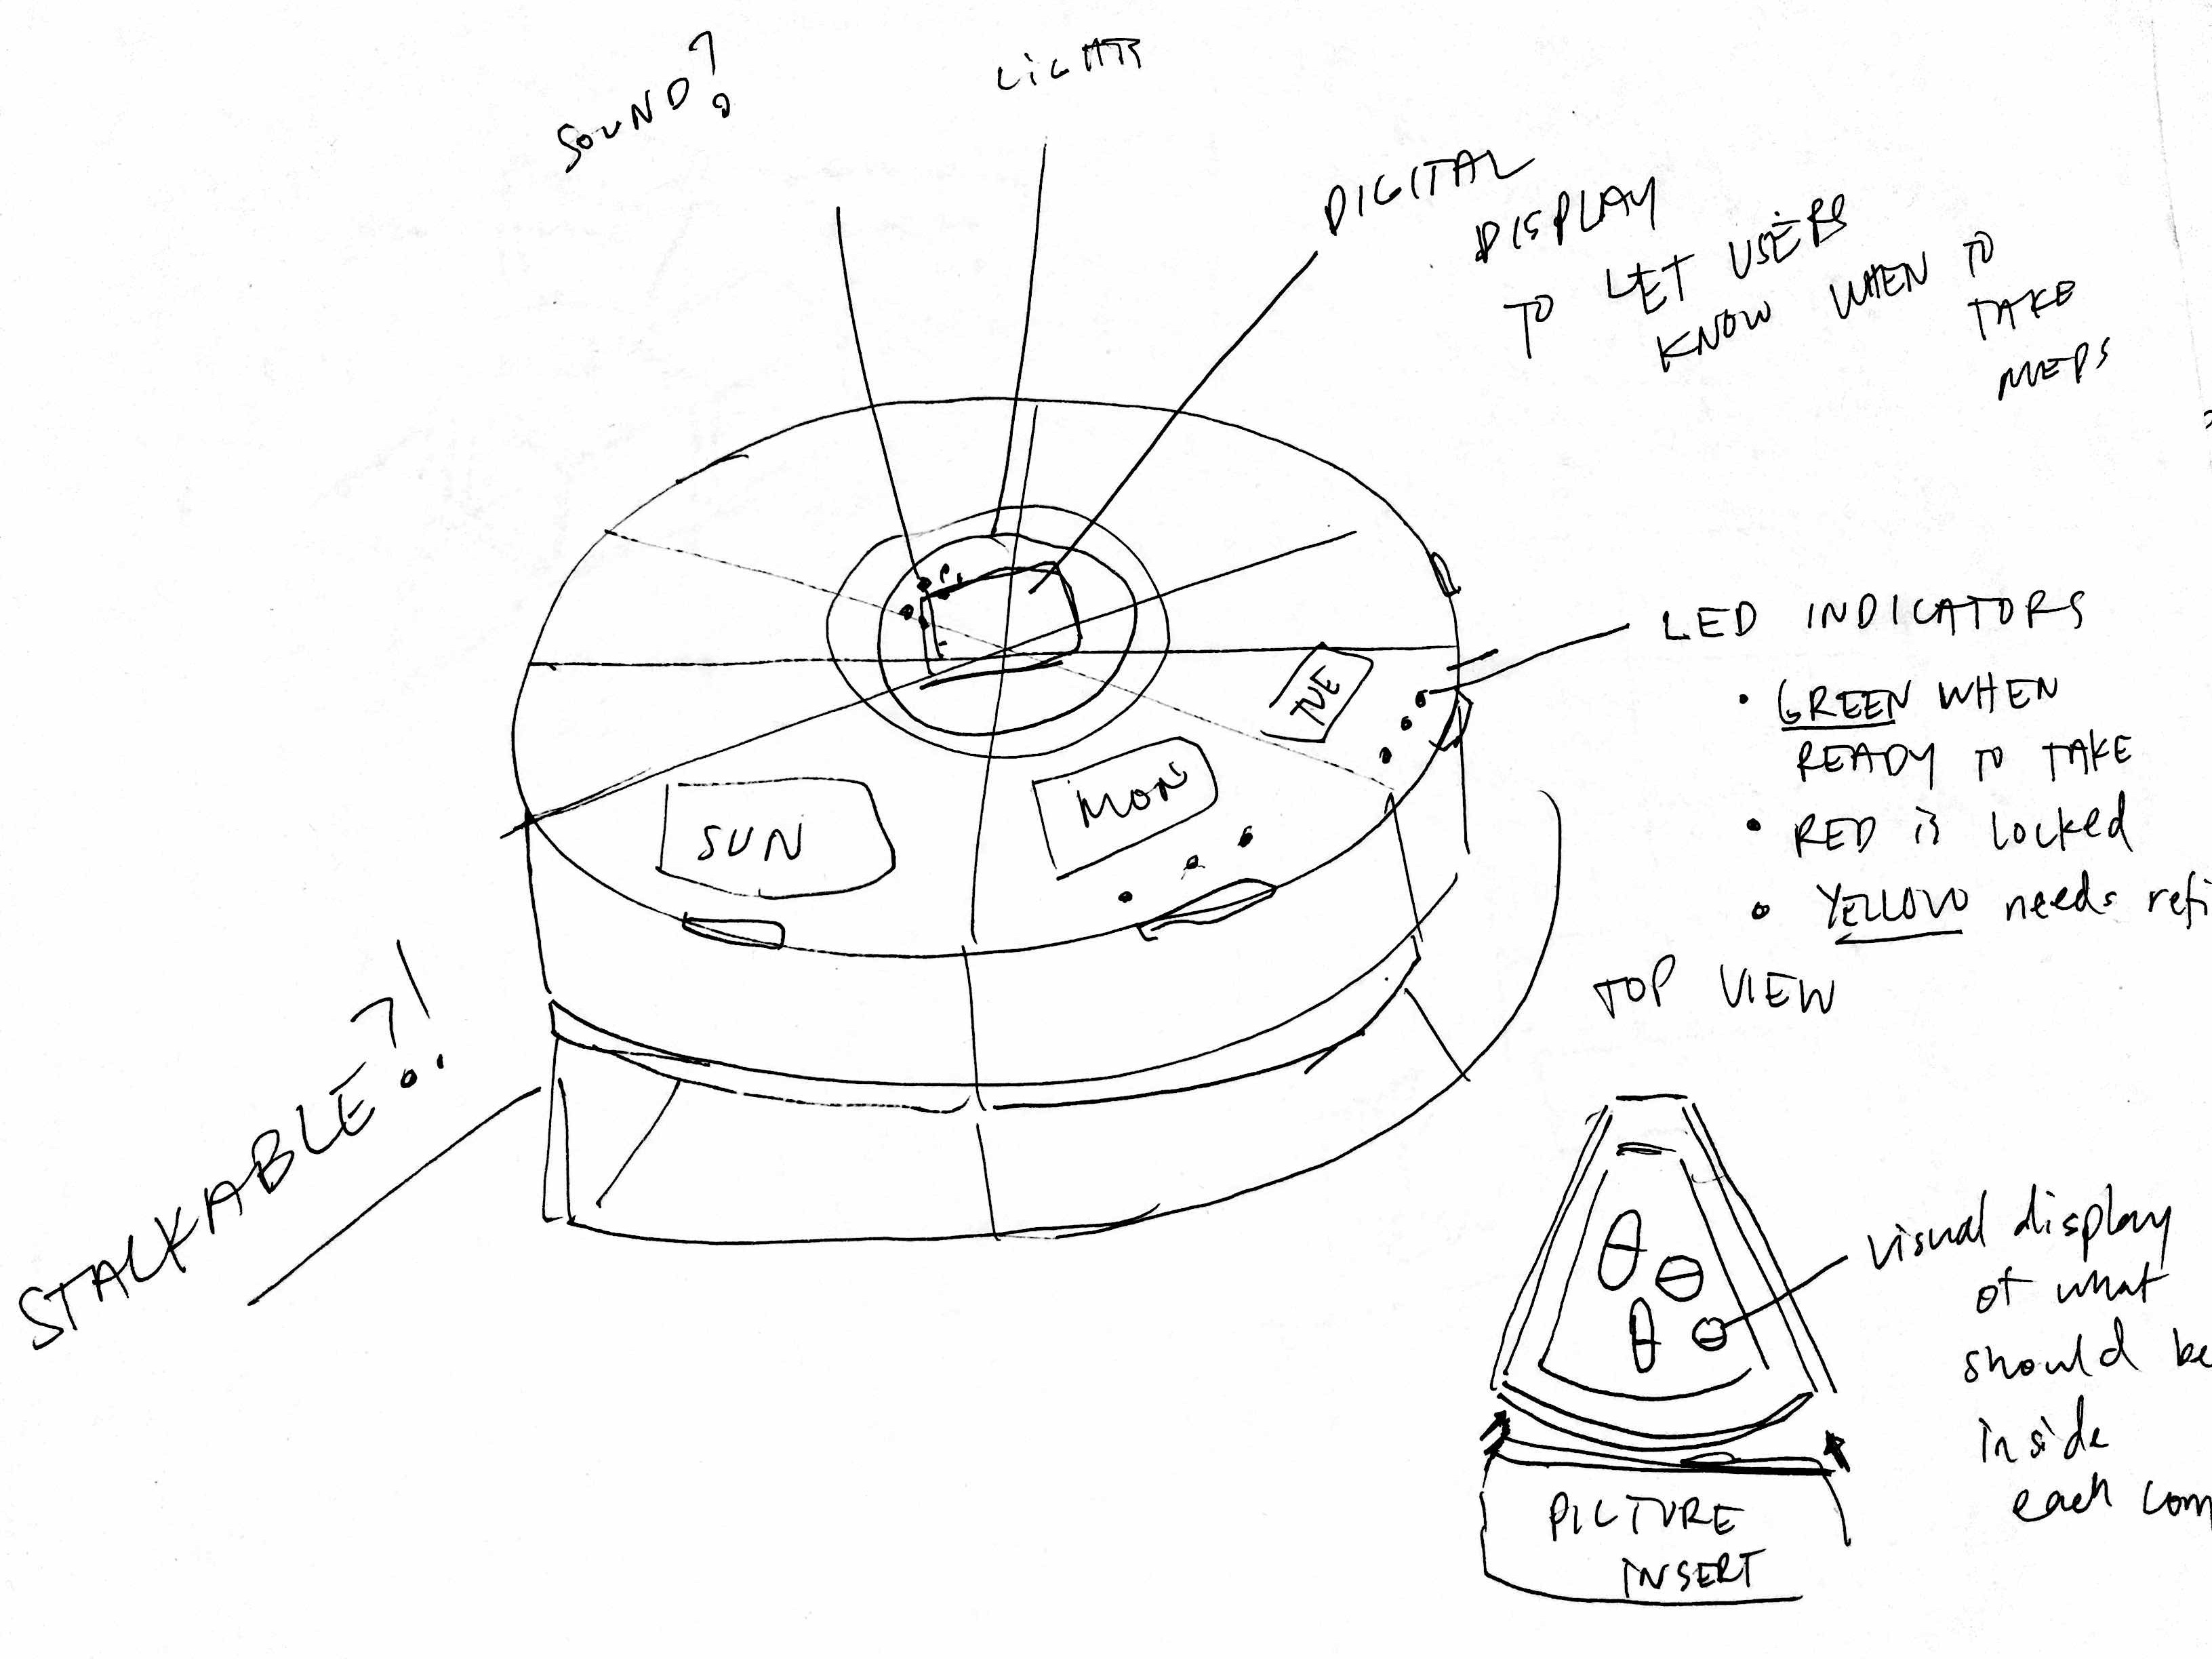 SOUND?
LIGHTS
DIGITAL
DISPLAY
TO LET USERS
KNOW WHEN TO
TAKE
MEDS
LED INDICATORS
• GREEN WHEN
READY TO TAKE
• RED is locked
• YELLOW needs refi
TUE
MON
SUN
TOP VIEW
STACKABLE?!
visual display
of what
should be
inside
each com
PICTURE
INSERT